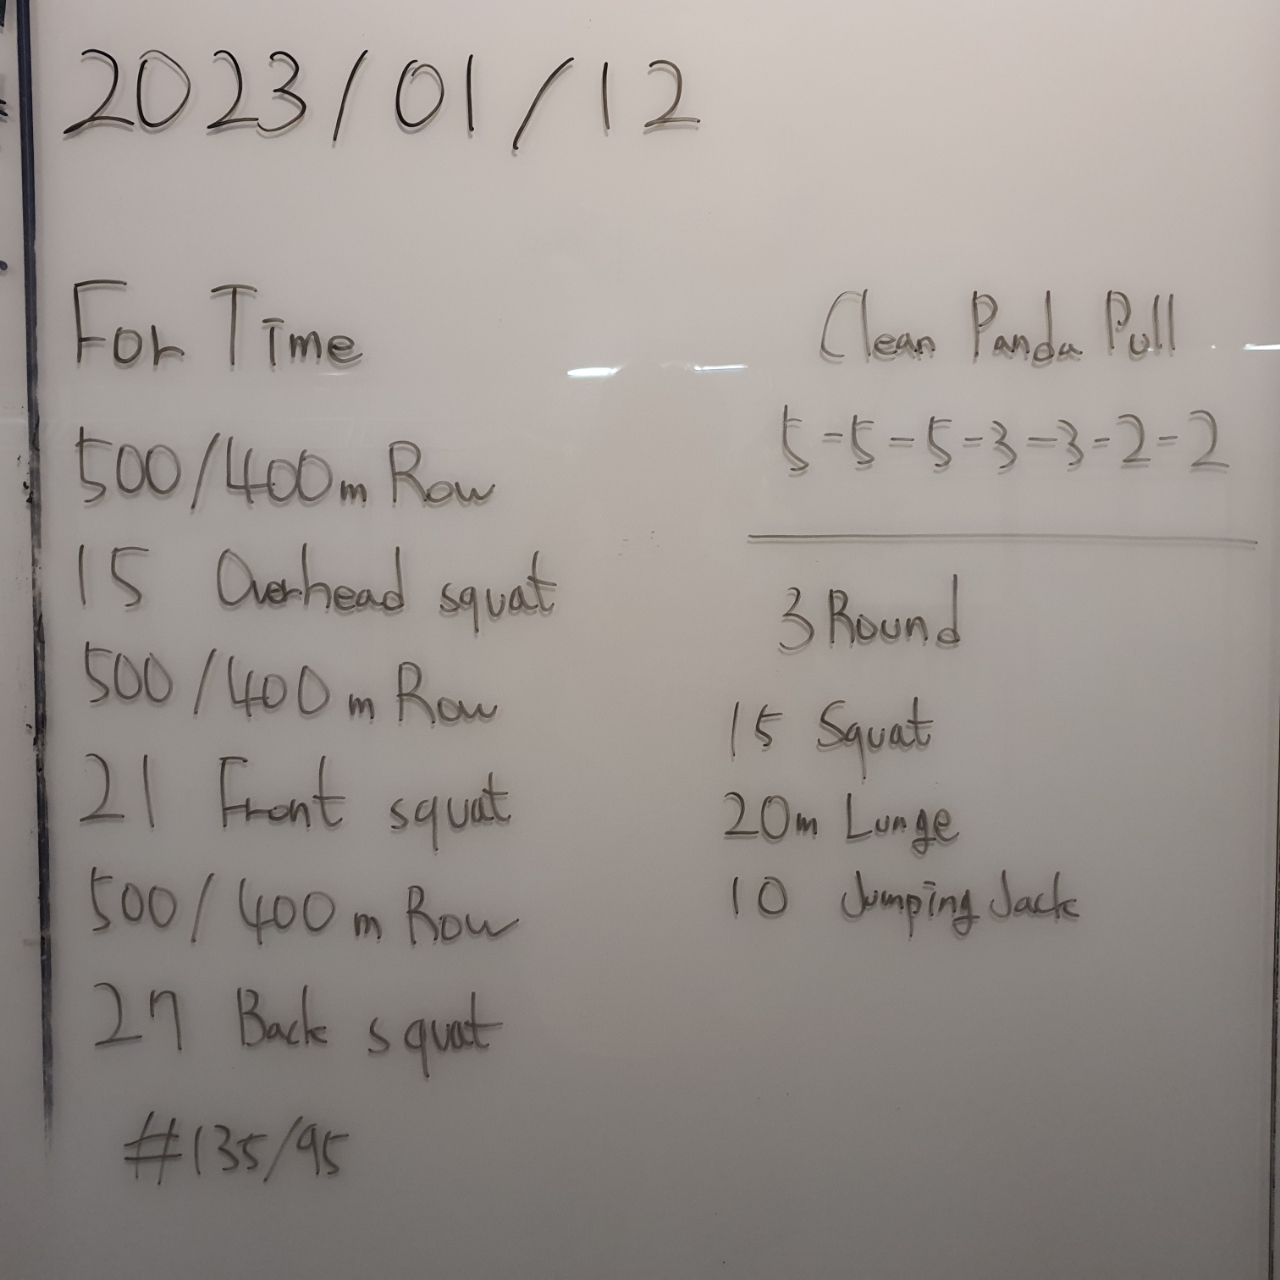 2023/01/12
For Time
500/400m Row
15 Overhead squat
500/400m Row
21 Front squat
500/400m Row
27 Back squat
#135/95
Clean Panda Pull
5-5-5-3-3-2-2
3 Round
15 Squat
20m Lunge
10 Jumping Jack